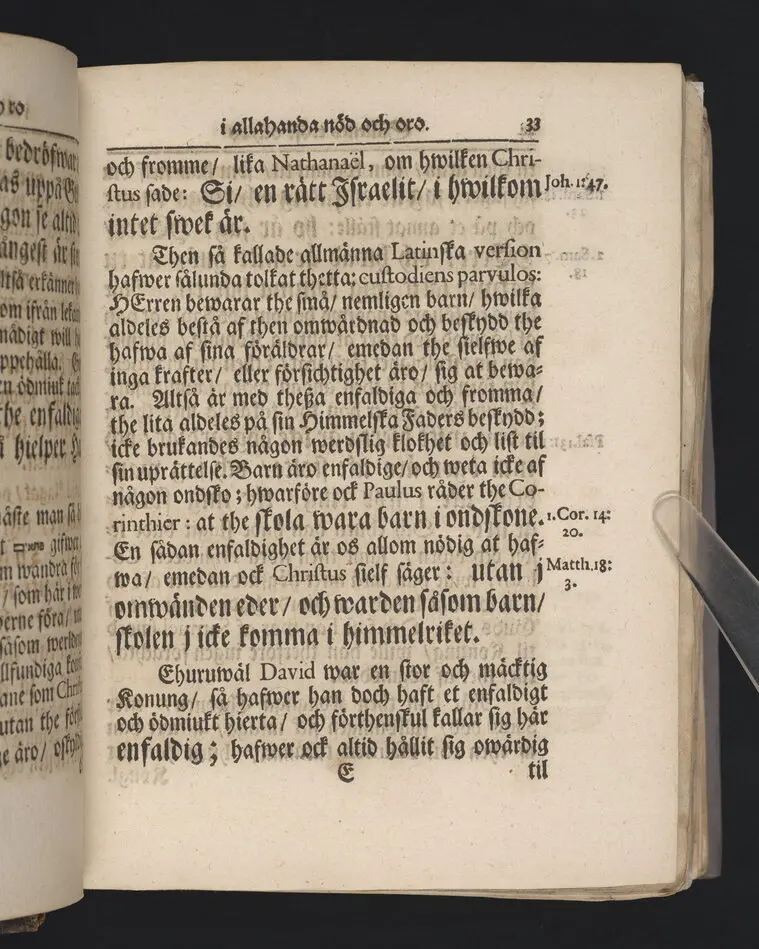 ro
bedröfwar
as uppå G
gon se altid
ängest är
ltså erkänner
om ifrån
nådigt will
ppehålla.
ödmiuk
the enfaldig
hielper
åste man så
gifwe
m wandra
/ som här i
perne föra/
såsom werld
llfundiga
ane som Chri
utan the för
e äro/
i allahanda nöd och oro. 33
och fromme/ lika Nathanaël, om hwilken Chri-
stus sade: Si/ en rätt Israelit/ i hwilkom Joh. 1: 47.
intet swek är.
Then så kallade allmänna Latinska version
hafwer sålunda tolkat thetta: custodiens parvulos:
HErren bewarar the små/ nemligen barn/ hwilka
aldeles bestå af then omwårdnad och beskydd the
hafwa af sina föräldrar/ emedan the sielfwe af
inga krafter/ eller försichtighet äro/ sig at bewa-
ra. Altså är med theßa enfaldiga och fromma/
the lita aldeles på sin Himmelska Faders beskydd;
icke brukandes någon werdslig klokhet och list til
sin uprättelse. Barn äro enfaldige/ och weta icke af
någon ondsko; hwarföre ock Paulus råder the Co-
rinthier: at the skola wara barn i ondskone. 1. Cor. 14:
20.
En sådan enfaldighet är os allom nödig at haf-
wa/ emedan ock Christus sielf säger: utan j Matth. 18:
3.
omwänden eder/ och warden såsom barn/
skolen j icke komma i himmelriket.
Ehuruwäl David war en stor och mäcktig
Konung/ så hafwer han doch haft et enfaldigt
och ödmiukt hierta/ och förthenskul kallar sig här
enfaldig; hafwer ock altid hållit sig owärdig
E til